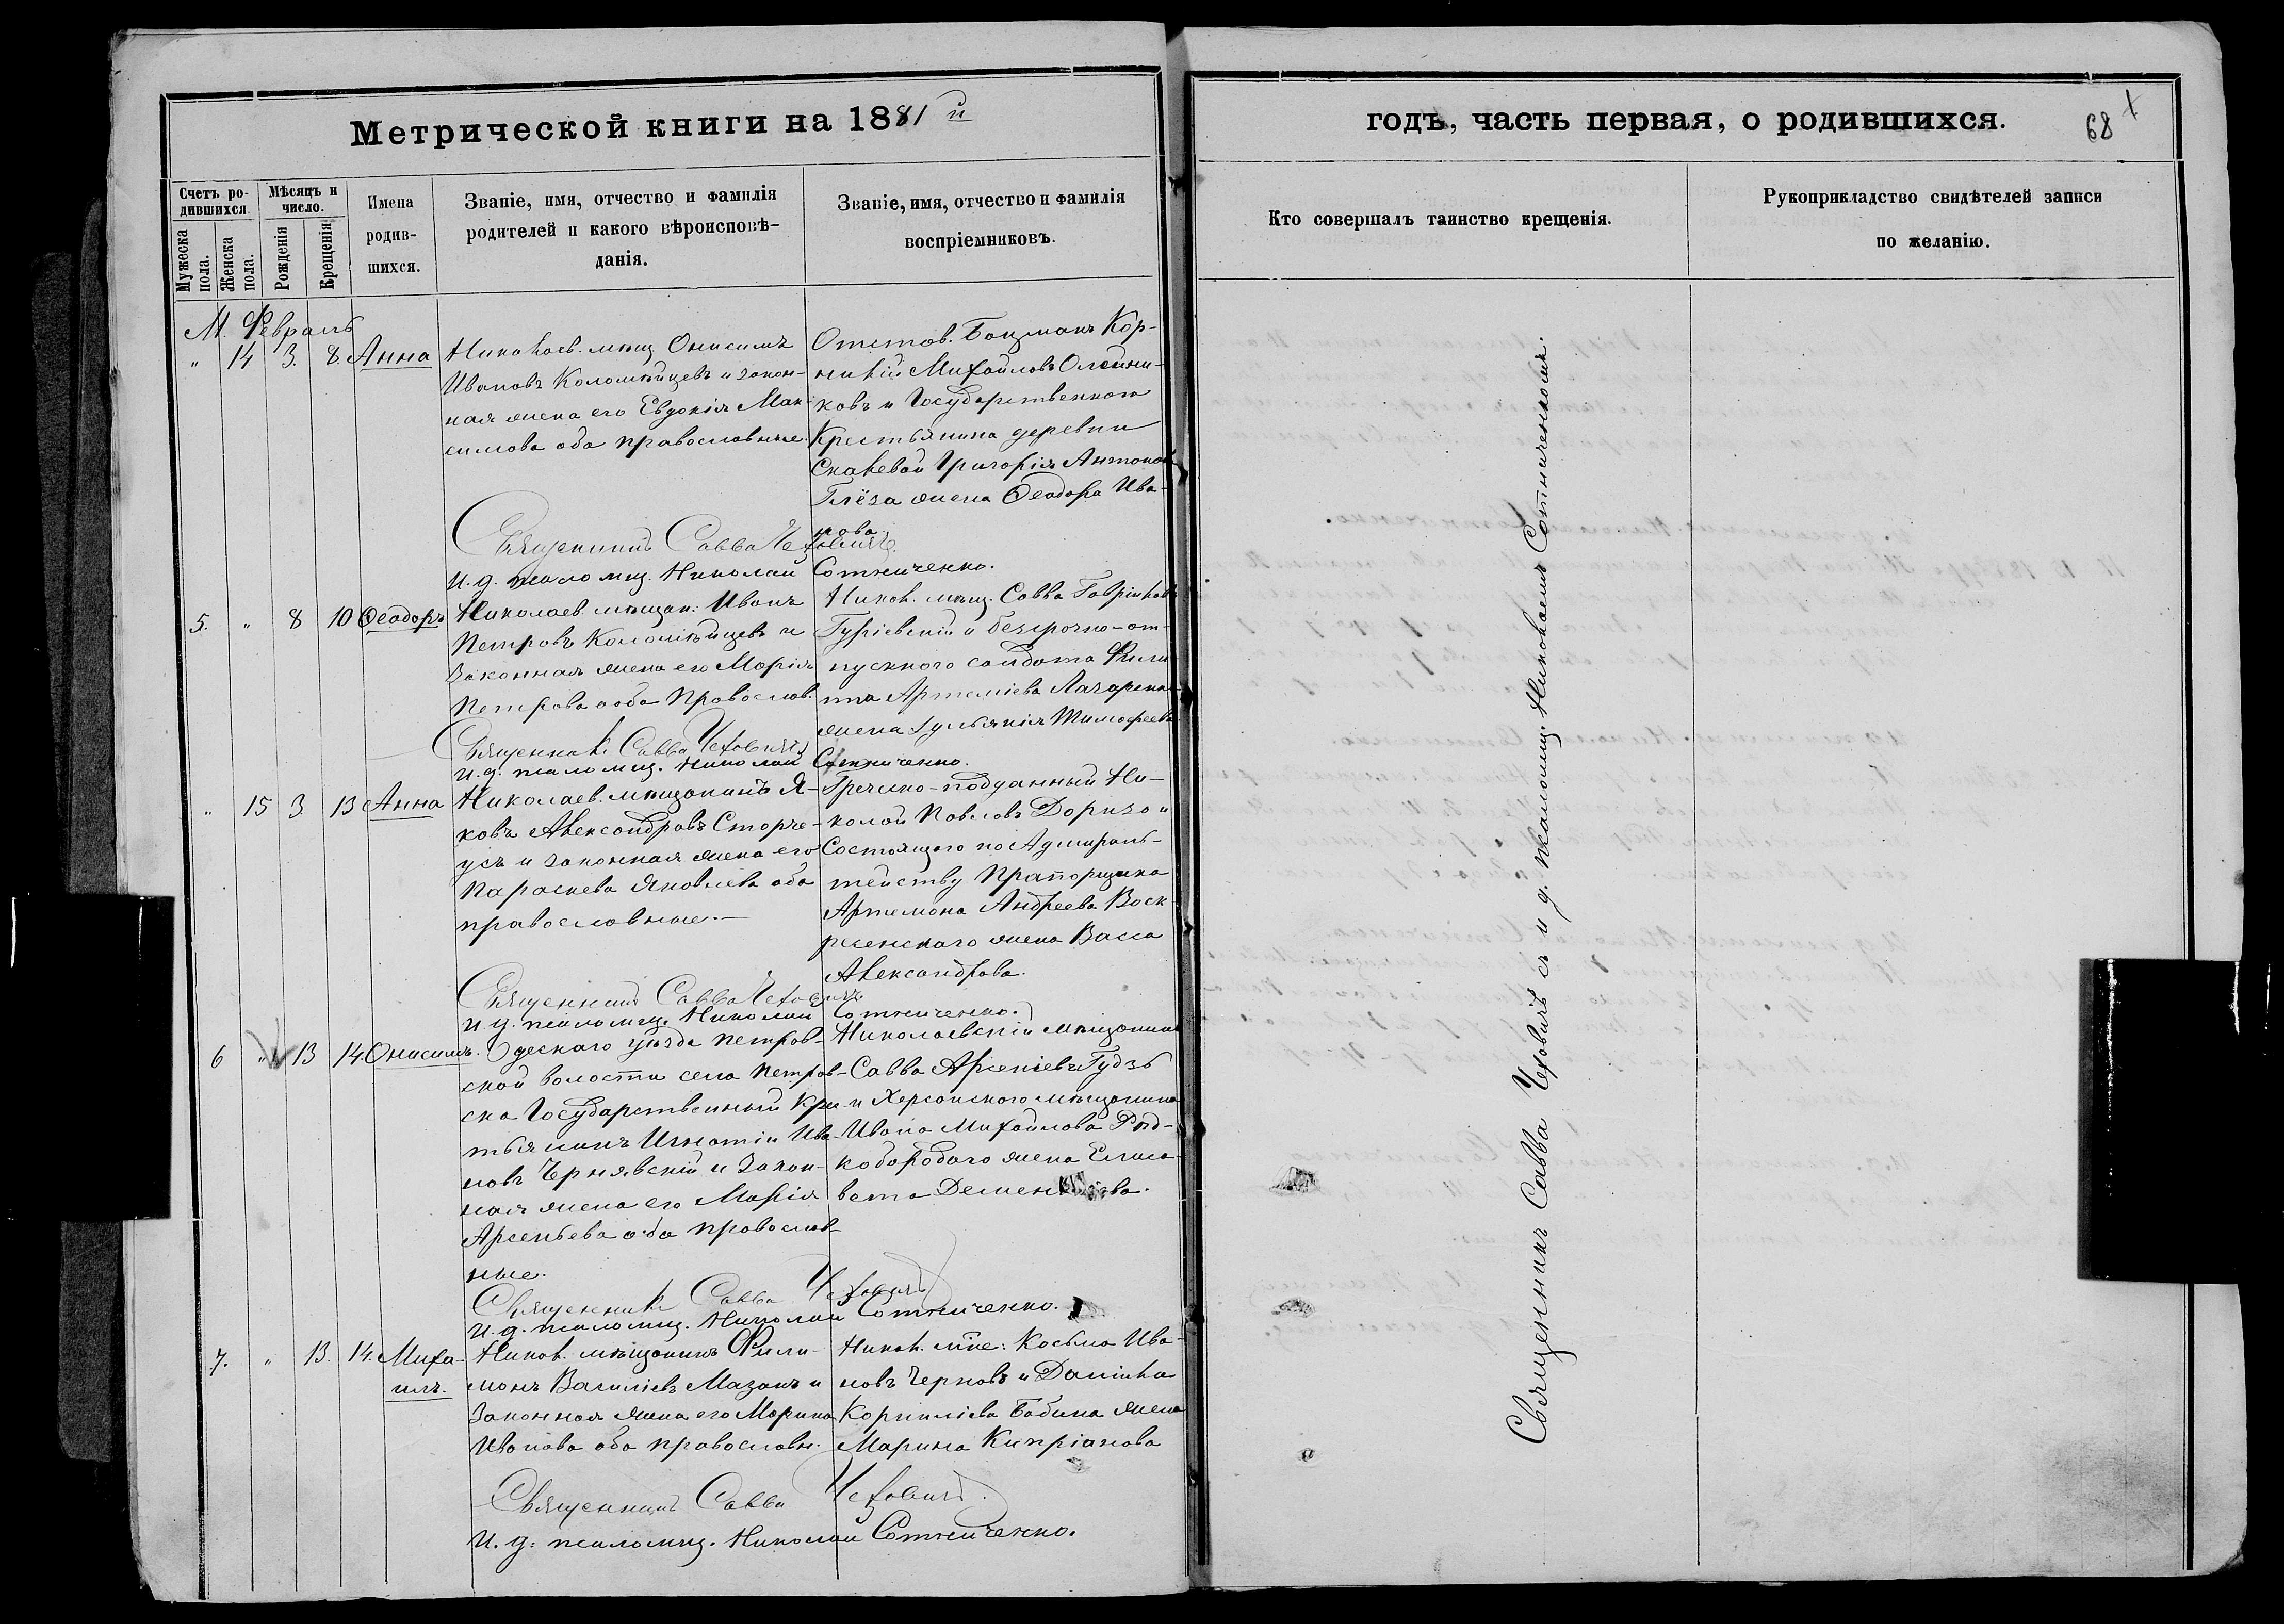 Метрической книги на 1881й
годъ, часть первая, о родившихся.
68
Счетъ ро-
дившихся.
Мужеска пола.
Женска пола.
Мѣсяцъ и
число.
Рожденія
Крещенія
Имена
родив-
шихся.
Званіе, имя, отчество и фамилія
родителей и какого вѣроисповѣ-
данія.
Званіе, имя, отчество и фамилія
воспріемниковъ.
Кто совершалъ таинство крещенія.
Рукоприкладство свидѣтелей записи
по желанію.
М. Февраль
" 14 3. 8. Анна
Николаев. мѣщ. Онисимъ
Ивановъ Коломѣйцевъ и закон-
ная жена его Евдокія Мак-
симова оба православные.
Отстав. Боцманъ Кор-
нилій Михайловъ Олейни-
ковъ и Государственнаго
Крестьянина деревни
Скалевой Григорія Антонова
жена Ѳеодора Ива-
нова.
Священникъ Савва Чехович.
И. д. псаломщ. Николай Сотниченко.
5. " 8 10 Ѳеодоръ
Николаев. мѣщан. Иванъ
Петровъ Коломѣйцевъ и
Законная жена его Марія
Петрова оба Православ.
Никол. мѣщ. Савва Гавріилов
Гуріевскій и безсрочно-от-
пускного солдата Фили
ппа Артеміева Лазаренка
жена Гульянія Тимофеева
Священникъ Савва Чеховичъ
И. д. псаломщ. Николай Сотниченко.
" 15 3 13 Анна
Николаев. мѣщанинъ Я-
ковъ Александровъ Сторче-
усъ и законная жена его
Параскева Яковлева оба
православные.—
Гречско-подданный Ни-
колай Павловъ Доризо и
Состоящаго по Адмираль-
тейству Прапорщика
Артемона Андреева Воск-
ресенскаго жена Васса
Александрова.
Священникъ Савва Чеховичъ
И. д. псаломщ. Николай Сотниченко.
6 " 13 14. Онисимъ.
Одескаго уѣзда Петров-
ской волости села Петров-
ска Государственный Крес
тьянинъ Игнатій Ива-
новъ Чернявскій и Закон-
ная жена его Марія
Арсеньева оба православ-
ные.
Николаевскій мѣщанинъ
Савва Арсеніевъ Гудзь
и Херсонскаго мѣщанина
Ивана Михайлова Рѣд-
кобородаго жена Елиса-
вета
Священникъ Савва Чеховичъ
И. д. псаломщ. Николай Сотниченко.
7. " 13. 14. Миха-
илъ.
Никол. мѣщанинъ Фили-
монъ Василіевъ Мазанъ и
Законная жена его Марина
Иванова оба православн.
Никол. мѣ͠не: Косьма Ива-
новъ Черновъ и Даніила
Корниліева Бабина жена
Марина Кипріанова
Священникъ Савва Чеховичъ.
И. д. псаломщ. Николай Сотниченко.
Священникъ Савва Чеховичъ съ и. д. псаломщ. Николаемъ Сотниченкомъ.